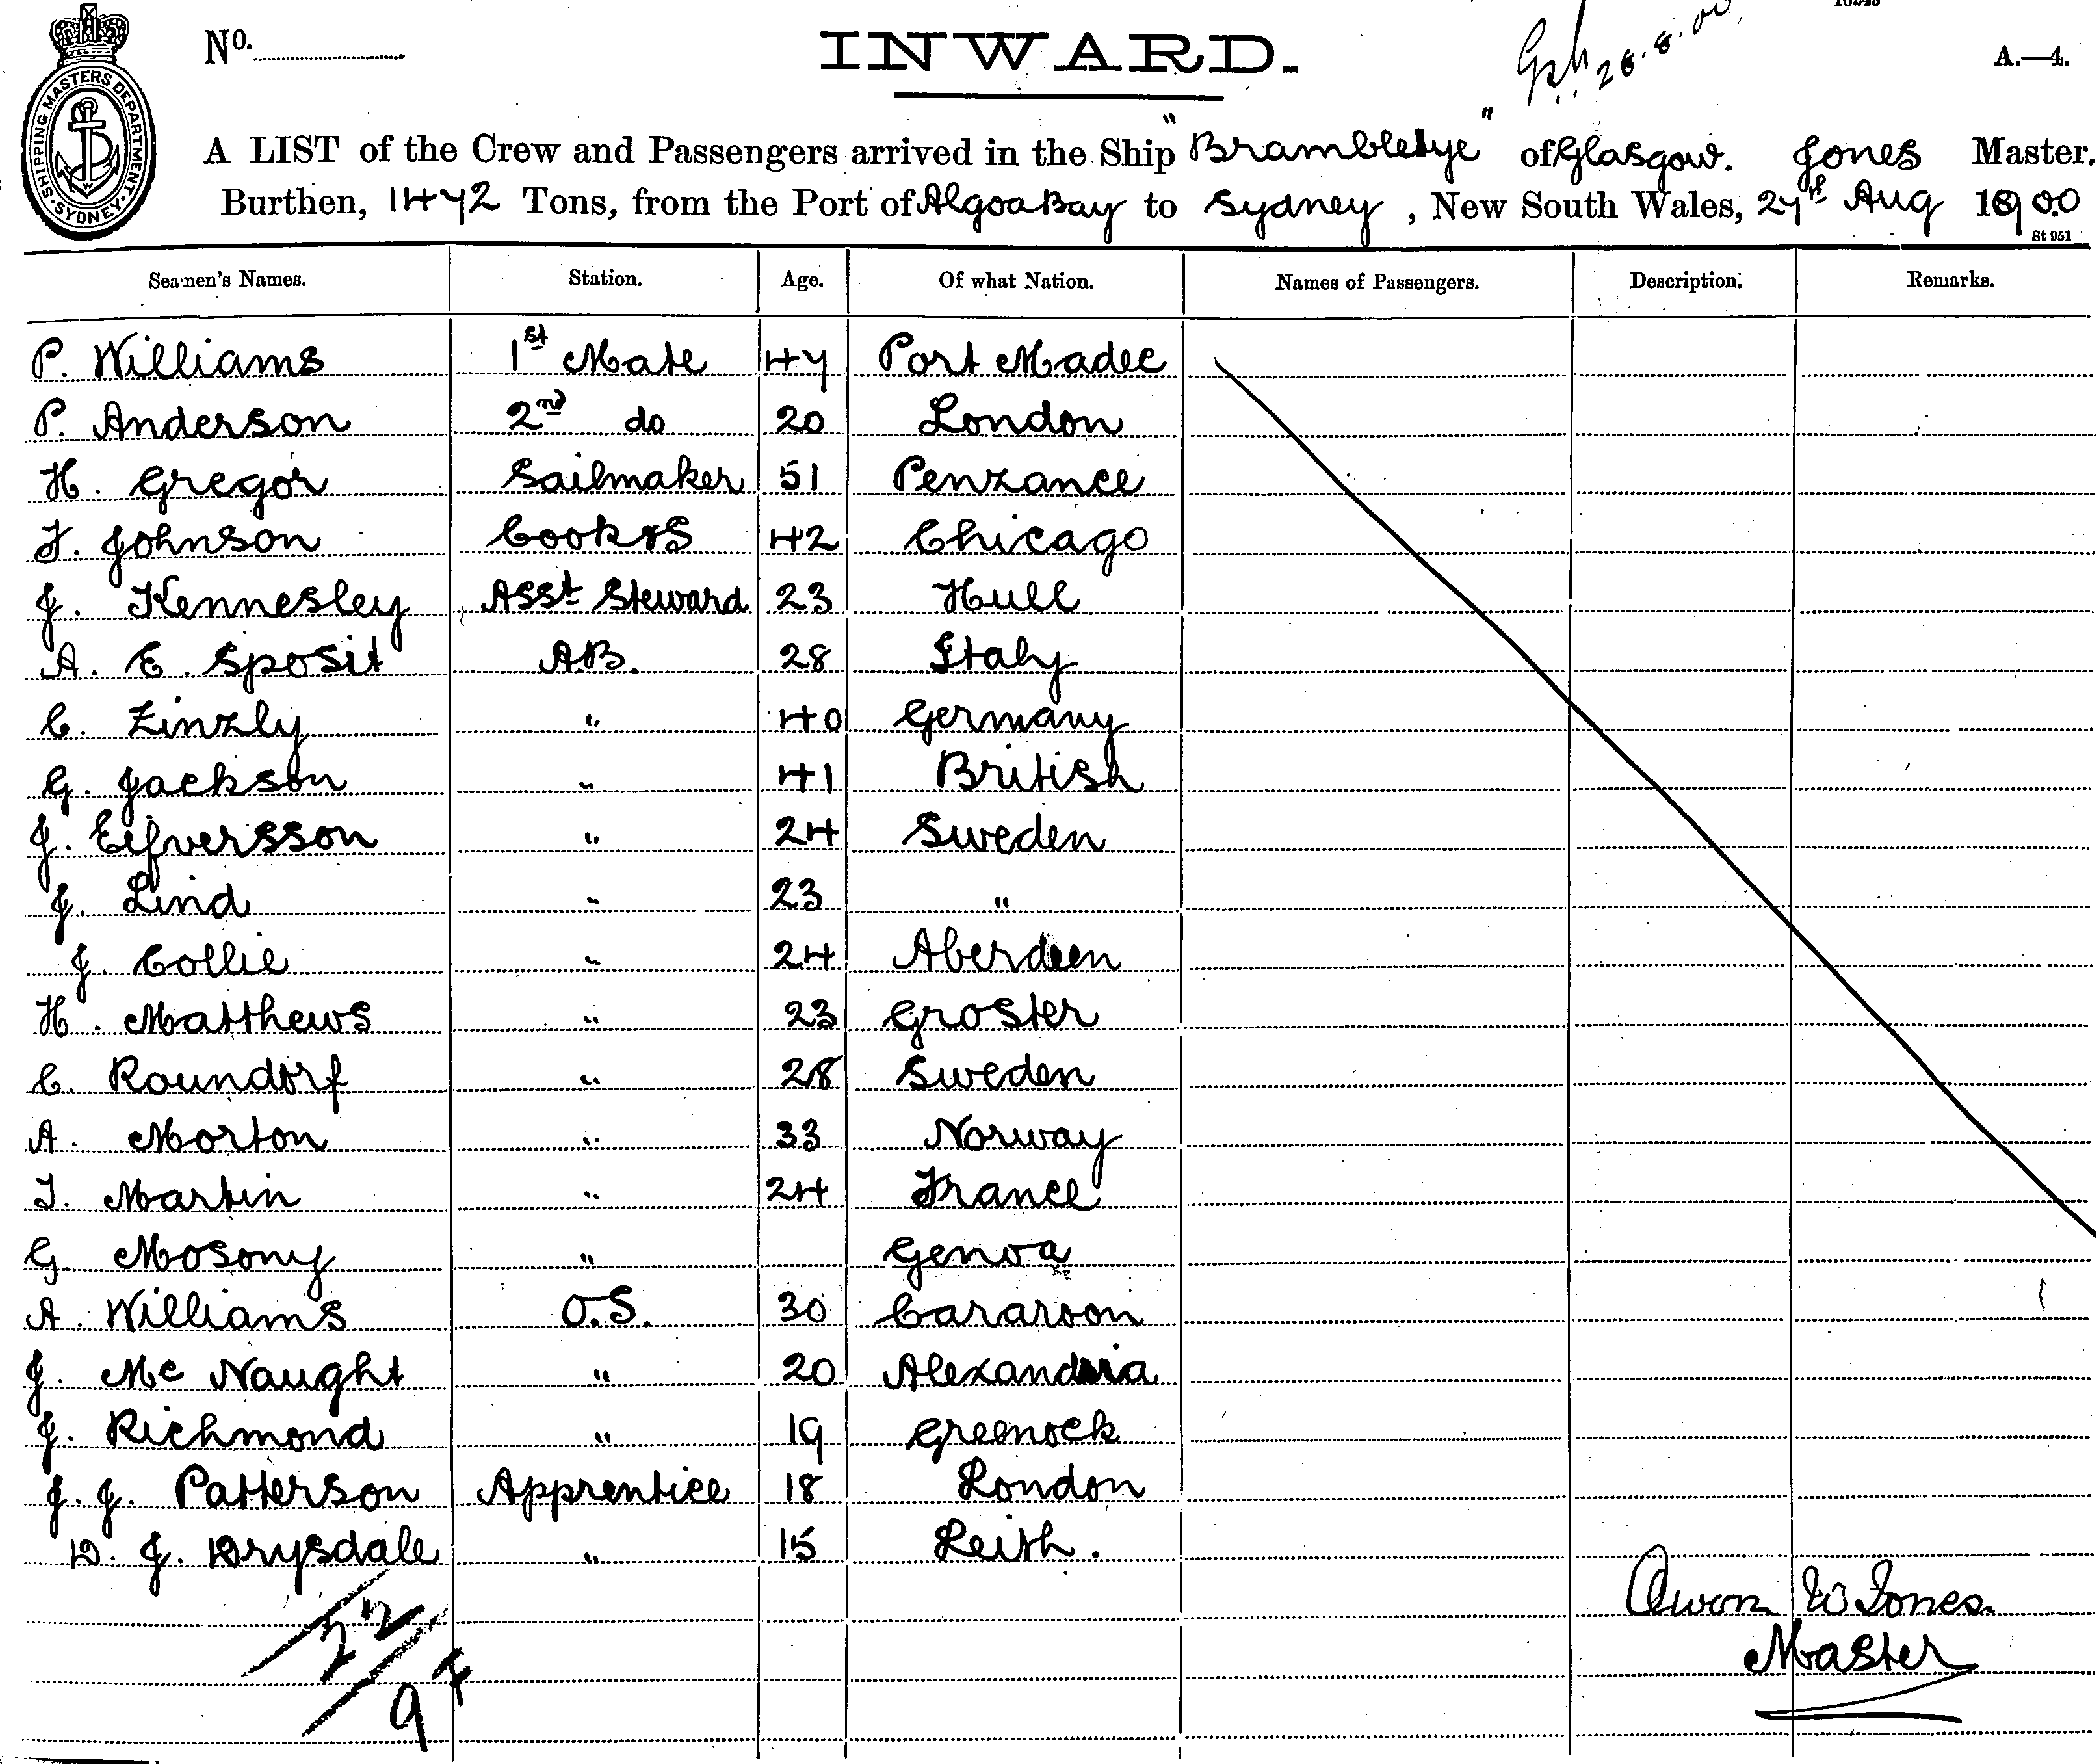 No. INWARD. 28.8.00. A.—4.
SHIPPING MASTERS DEPARTMENT SYDNEY
A LIST of the Crew and Passengers arrived in the Ship "Brambletye" of Glasgow. Jones Master.
Burthen, 1472 Tons, from the Port of Algoa Bay to Sydney, New South Wales, 27th Aug 1900
St 951
Seamen's Names. Station. Age. Of what Nation. Names of Passengers. Description. Remarks.
P. Williams 1st Mate 47 Port Madec
P. Anderson 2nd do 20 London
H. Gregor Sailmaker 51 Penzance
F. Johnson Cook & S 42 Chicago
J. Kennesley Asst Steward 23 Hull
A. E. Sposit AB. 28 Italy
C. Zinzly " 40 Germany
G. Jackson " 41 British
J. Eifversson " 24 Sweden
J. Lind " 23 "
J. Collie " 24 Aberdeen
H. Matthews " 23 Groster
C. Roundorf " 28 Sweden
A. Morton " 33 Norway
J. Martin " 24 France
G. Mosony " Genoa
A. Williams O.S. 30 Cararvon
J. Mc Naught " 20 Alexandria
J. Richmond " 19 Greenock
J. J. Patterson Apprentice 18 London
D. J. Drysdale " 15 Leith.
Owen W Jones.
22 Master
94